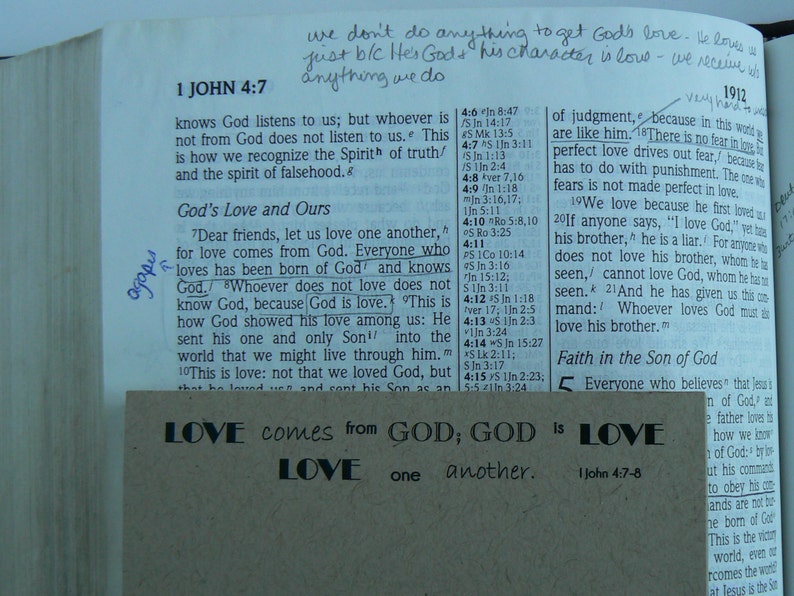 we don't do anything to get God's love - He loves us
just b/c He's God & his character is love - we receive w/o
anything we do
1 JOHN 4:7
1912
very hard to
knows God listens to us; but whoever is
not from God does not listen to us.e This
is how we recognize the Spirith of truthf
and the spirit of falsehood.g
God's Love and Ours
7Dear friends, let us love one another,h
for love comes from God. Everyone who
loves has been born of Godi and knows
God.j 8Whoever does not love does not
know God, because God is love.k 9This is
how God showed his love among us: He
sent his one and only Sonl into the
world that we might live through him.m
10This is love: not that we loved God, but
that he loved usn and sent his Son as an
agapes
4:6 eJn 8:47
fS Jn 14:17
gS Mk 13:5
4:7 hS 1Jn 3:11
iS Jn 1:13
jS 1Jn 2:4
4:8 kver 7,16
4:9 lJn 1:18
mJn 3:16,17;
1Jn 5:11
4:10 nRo 5:8,10
oS Ro 3:25
4:11
pS 1Co 10:14
qS Jn 3:16
rJn 15:12;
S 1Jn 3:11
4:12 sS Jn 1:18
tver 17; 1Jn 2:5
4:13 uS 1Jn 2:3
vJn 3:24
4:14 wS Jn 15:27
xS Lk 2:11;
S Jn 3:17
4:15 yS 1Jn 2:23;
5:5 z1Jn 3:24
of judgment,e because in this world we
are like him. 18There is no fear in love. But
perfect love drives out fear,f because fear
has to do with punishment. The one who
fears is not made perfect in love.
19We love because he first loved us.g
20If anyone says, "I love God," yet hates
his brother,h he is a liar.i For anyone who
does not love his brother, whom he has
seen,j cannot love God, whom he has not
seen.k 21And he has given us this com-
mand:l Whoever loves God must also
love his brother.m
Faith in the Son of God
5 Everyone who believesn that Jesus is
n of God,p and
e father loves his
how we know
n of God:s by lov-
ut his commands.
to obey his com-
ands are not bur-
ne born of God
This is the victory
world, even our
rcomes the world?
at Jesus is the Son
LOVE comes from GOD; GOD is LOVE
LOVE one another. 1 John 4:7-8